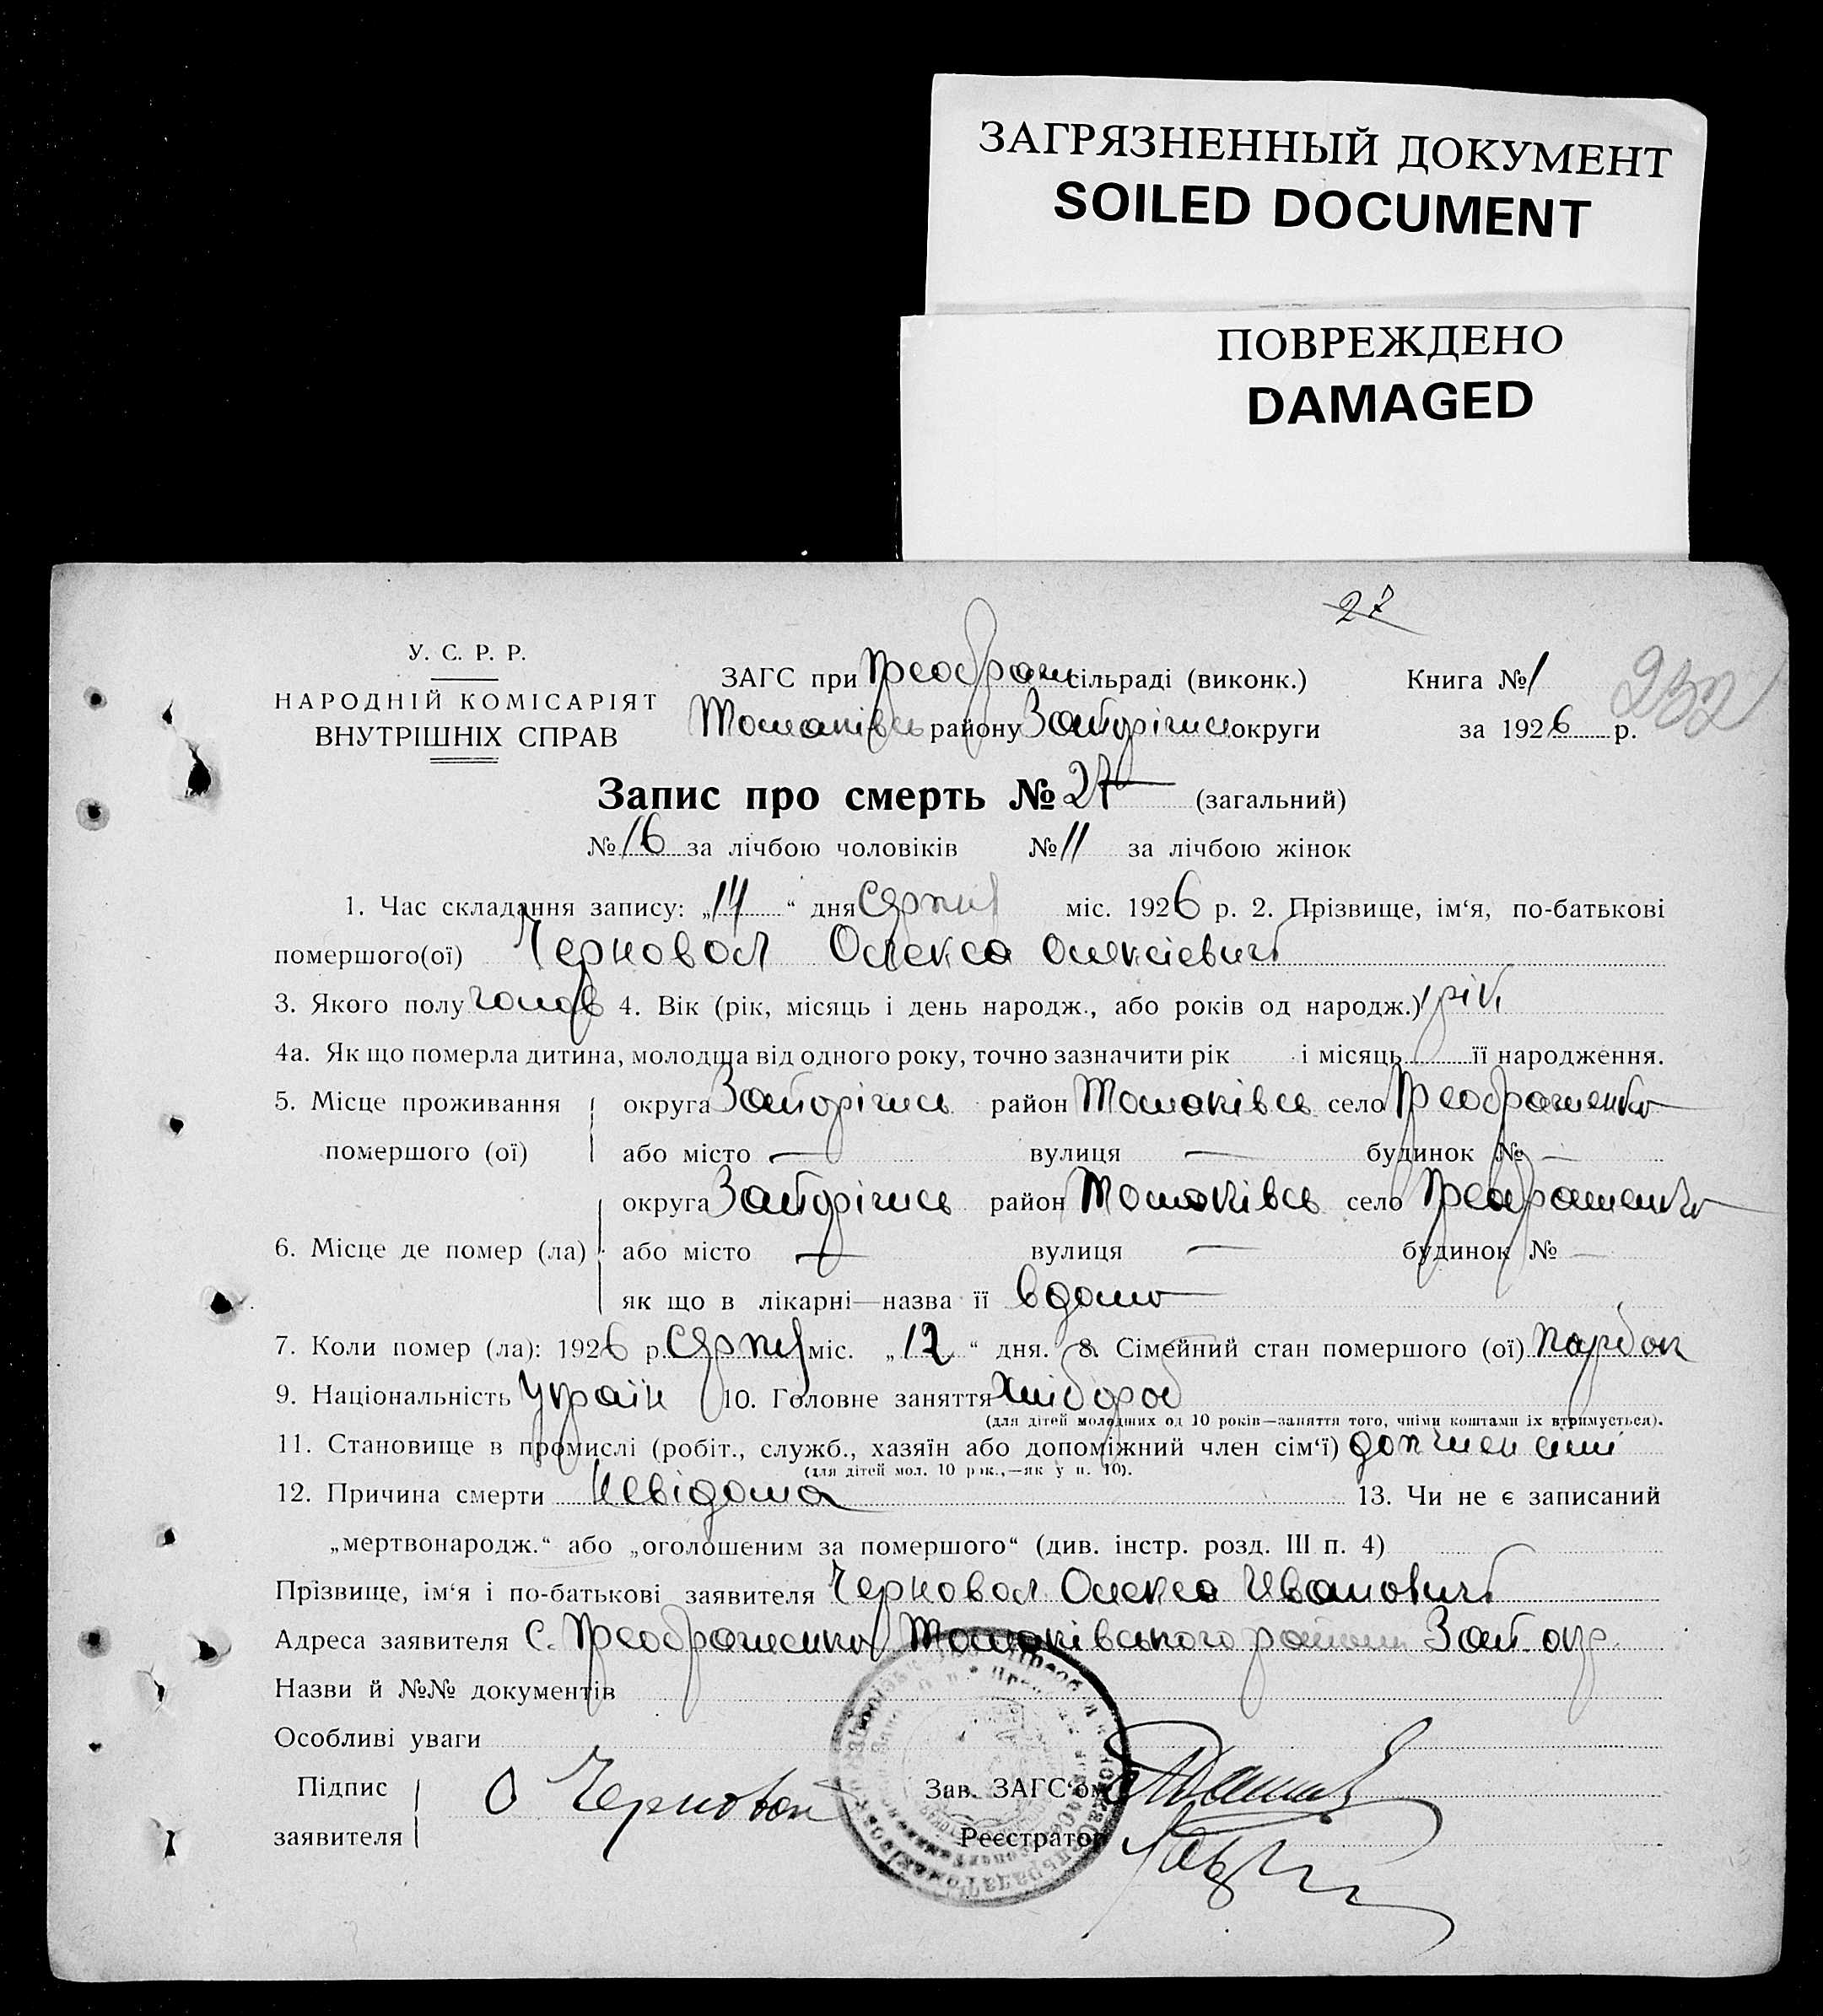 ЗАГРЯЗНЕННЫЙ ДОКУМЕНТ
SOILED DOCUMENT
ПОВРЕЖДЕНО
DAMAGED
27
У. С. Р. Р.
НАРОДНІЙ КОМІСАРІЯТ
ВНУТРІШНІХ СПРАВ
ЗАГС при Преображ сільраді (виконк.) Книга № 1
232
Томаківсь району Запоріжсь округи за 1926 р.
Запис про смерть № 27 (загальний)
№ 16 за лічбою чоловіків № 11 за лічбою жінок
1. Час складання запису: „14“ дня Серпня міс. 1926 р. 2. Прізвище, ім‘я, по-батькові
помершого(ої) Черновол Олекса Олексієвич
3. Якого полу чолов 4. Вік (рік, місяць і день народж., або років од народж.) 1 рік
4а. Як що померла дитина, молодша від одного року, точно зазначити рік і місяць її народження.
5. Місце проживання округа Запоріжсь район Томаківсь село Преображенка
помершого (ої) або місто — вулиця — будинок № —
округа Запоріжсь район Томаківсь село Преображенка
6. Місце де помер (ла) або місто — вулиця — будинок № —
як що в лікарні—назва її вдома
7. Коли помер (ла): 1926 р. Серпня міс. „12“ дня. 8. Сімейний стан помершого (ої) парубок
9. Національність Україн 10. Головне заняття Хлібороб
(для дітей молодших од 10 років—заняття того, чиїми коштами їх втримується).
11. Становище в промислі (робіт., служб., хазяїн або допоміжний член сім‘ї) доп член сімї
(для дітей мол. 10 рок.,—як у п. 10).
12. Причина смерти Невідома 13. Чи не є записаний
„мертвонародж.“ або „оголошеним за помершого“ (див. інстр. розд. III п. 4)
Прізвище, ім‘я і по-батькові заявителя Черновол Олекса Иванович
Адреса заявителя С. Преображенка Томаківського району Зап окр.
Назви й №№ документів
Особливі уваги
Підпис О Черновол Зав. ЗАГС‘ом
заявителя Реєстратор